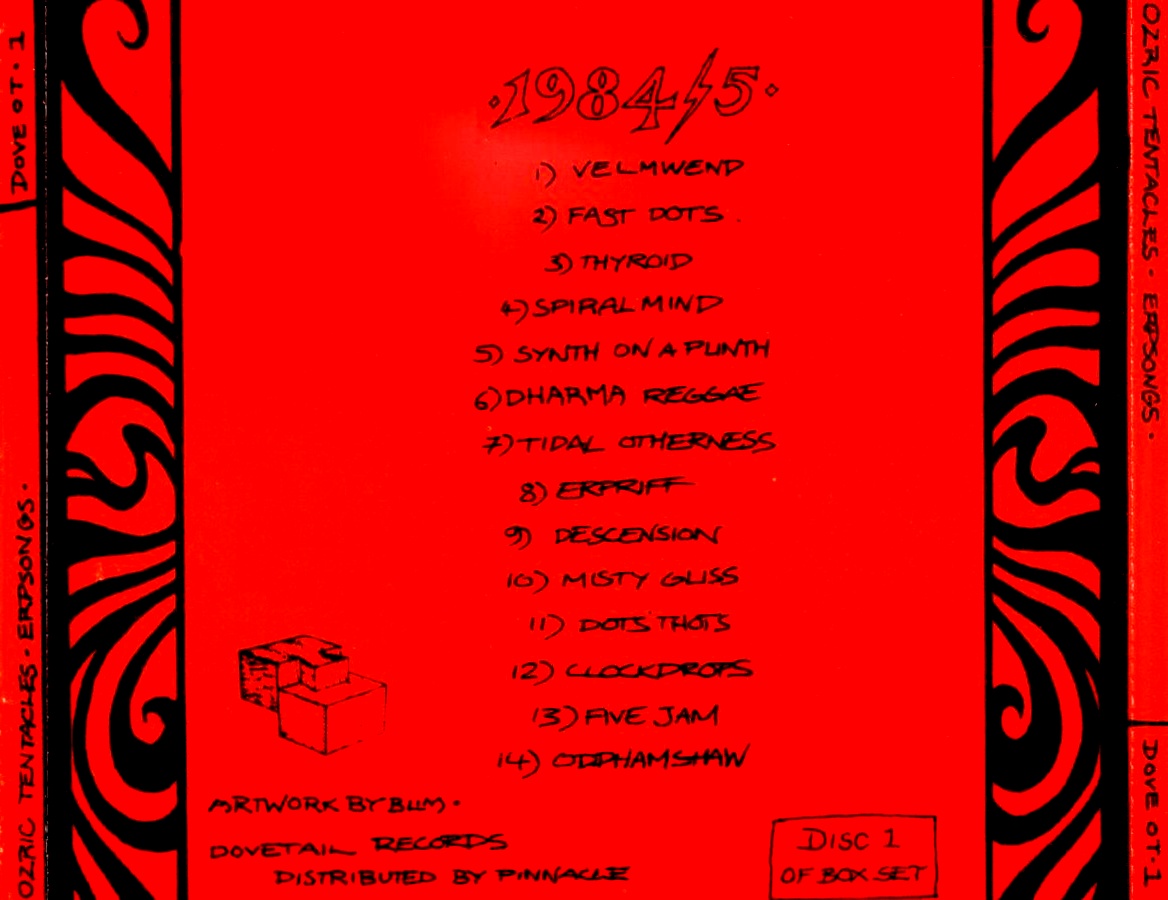 DOVE OT·1
OZRIC TENTACLES · ERPSONGS ·
·1984/5·
1) VELMWEND
2) FAST DOTS.
3) THYROID
4) SPIRAL MIND
5) SYNTH ON A PLINTH
6) DHARMA REGGAE
7) TIDAL OTHERNESS
8) ERPRIFF
9) DESCENSION
10) MISTY GLISS
11) DOTS THOTS
12) CLOCKDROPS
13) FIVE JAM
14) ODDHAMSHAW
ARTWORK BY BLIM·
DOVETAIL RECORDS
DISTRIBUTED BY PINNACLE
DISC 1
OF BOX SET
OZRIC TENTACLES · ERPSONGS ·
DOVE OT·1